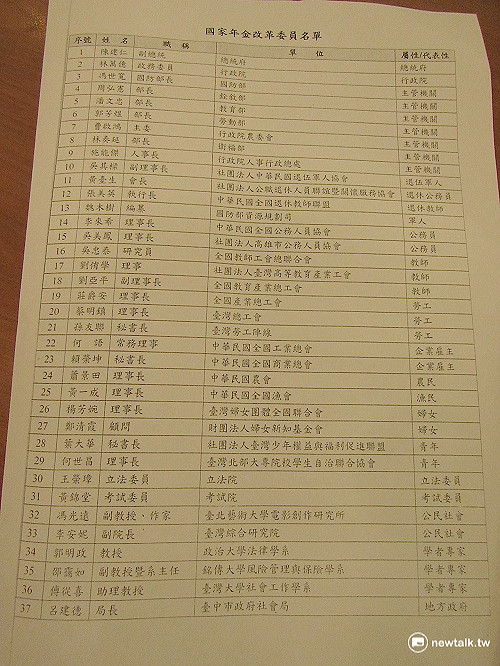 國家年金改革委員名單
序號 姓名 職稱 單位 屬性/代表性
1 陳建仁 副總統 總統府 總統府
2 林萬億 政務委員 行政院 行政院
3 馮世寬 國防部長 國防部 主管機關
4 周弘憲 部長 銓敘部 主管機關
5 潘文忠 部長 教育部 主管機關
6 郭芳煜 部長 勞動部 主管機關
7 曹啟鴻 主委 行政院農委會 主管機關
8 林奏延 部長 衛福部 主管機關
9 施能傑 人事長 行政院人事行政總處 主管機關
10 吳其樑 副理事長 社團法人中華民國退伍軍人協會 退伍軍人
11 黃臺生 會長 社團法人公職退休人員聯誼暨關懷服務協會 退休公務員
12 張美英 執行長 中華民國全國退休教師聯盟 退休教師
13 魏木樹 編纂 國防部資源規劃司 軍人
14 李來希 理事長 中華民國全國公務人員協會 公務員
15 吳美鳳 理事長 社團法人高雄市公務人員協會 公務員
16 吳忠泰 研究員 全國教師工會總聯合會 教師
17 劉侑學 理事 社團法人臺灣高等教育產業工會 教師
18 劉亞平 副理事長 全國教育產業總工會 教師
19 莊爵安 理事長 全國產業總工會 勞工
20 蔡明鎮 理事長 臺灣總工會 勞工
21 孫友聯 秘書長 臺灣勞工陣線 勞工
22 何語 常務理事 中華民國全國工業總會 企業雇主
23 賴榮坤 秘書長 中華民國全國商業總會 企業雇主
24 蕭景田 理事長 中華民國農會 農民
25 黃一成 理事長 中華民國全國漁會 漁民
26 楊芳婉 理事長 臺灣婦女團體全國聯合會 婦女
27 鄭清霞 顧問 財團法人婦女新知基金會 婦女
28 葉大華 秘書長 社團法人臺灣少年權益與福利促進聯盟 青年
29 何世昌 理事長 臺灣北部大專院校學生自治聯合協會 青年
30 王榮璋 立法委員 立法院 立法委員
31 黃錦堂 考試委員 考試院 考試委員
32 馮光遠 副教授、作家 臺北藝術大學電影創作研究所 公民社會
33 李安妮 副院長 臺灣綜合研究院 公民社會
34 郭明政 教授 政治大學法律學系 學者專家
35 邵靄如 副教授暨系主任 銘傳大學風險管理與保險學系 學者專家
36 傅從喜 助理教授 臺灣大學社會工作學系 學者專家
37 呂建德 局長 臺中市政府社會局 地方政府
newtalk.tw